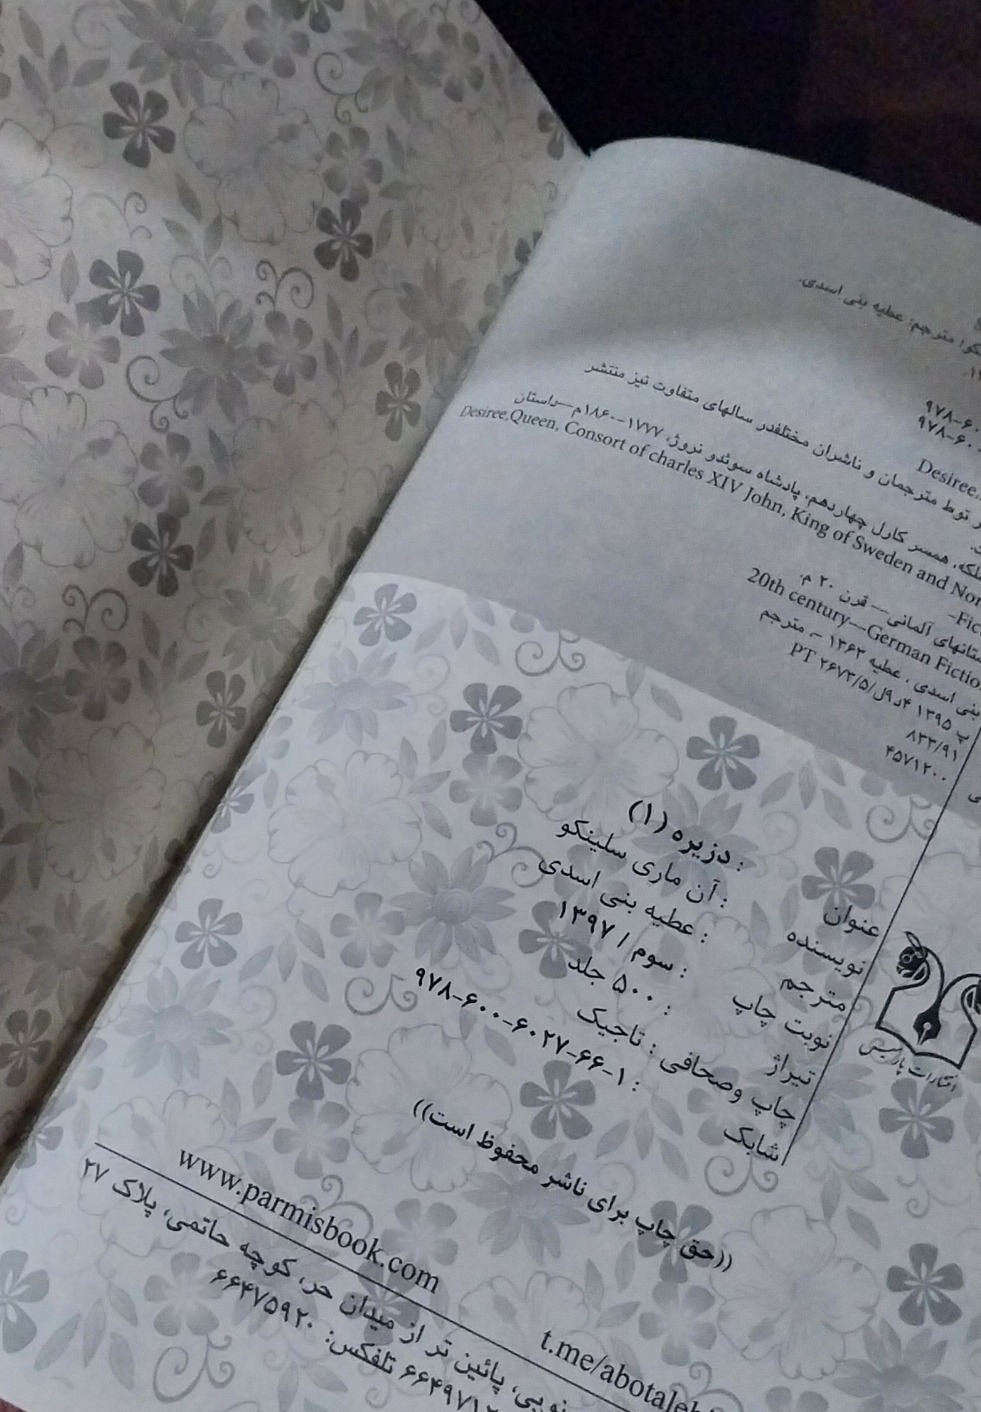 مترجم: عطیه بنی اسدی.
۹۷۸-۶۰
۹۷۸-۶۰۰
Desiree
توط مترجمان و ناشران مختلفدر سالهای متفاوت نیز منتشر
همسر کارل چهاردهم، پادشاه سوئدو نروژ، ۱۷۷۷-۱۸۶۰م--داستان
Desiree,Queen, Consort of charles XIV John, King of Sweden and Nor
-Fic
آلمانی--قرن ۲۰ م.
20th century--German Fictio
بنی اسدی، عطیه ۱۳۶۳ - مترجم
PT ۲۶۷۳/۵/ل۹د۴ ۱۳۹۵ پ
۸۳۳/۹۱
۴۵۷۱۲۰۰
عنوان : دزیره (۱)
نویسنده : آن ماری سلینکو
مترجم : عطیه بنی اسدی
نوبت چاپ : سوم / ۱۳۹۷
تیراژ : ۵۰۰ جلد
چاپ وصحافی : تاجیک
شابک : ۹۷۸-۶۰۰-۶۰۲۷-۶۶-۱
انتشارات پارمیس
((حق چاپ برای ناشر محفوظ است))
www.parmisbook.com
t.me/abotaleb
پائین تر از میدان حر، کوچه حاتمی، پلاک ۲۷
۶۶۴۹۷۱۲ تلفکس: ۶۶۴۷۵۹۲۰